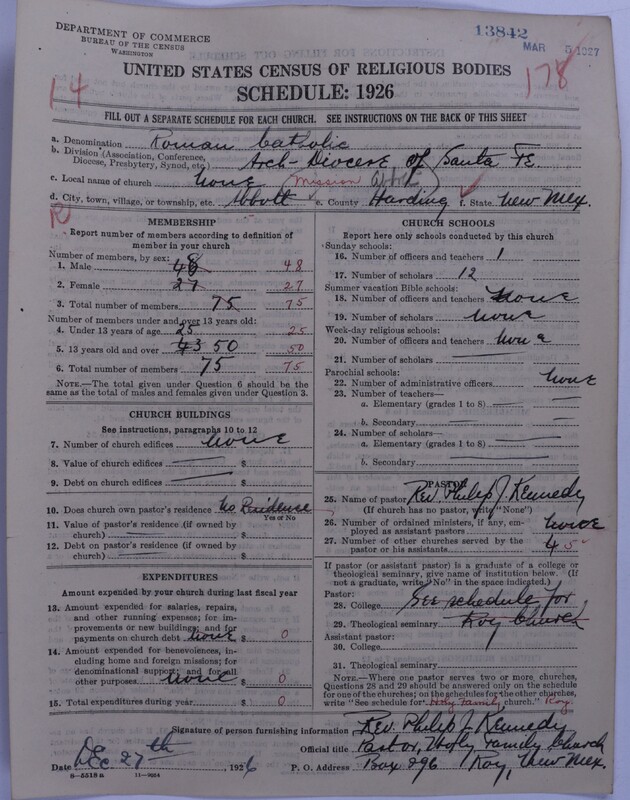 DEPARTMENT OF COMMERCE
BUREAU OF THE CENSUS
WASHINGTON
13842
MAR 5 1927
UNITED STATES CENSUS OF RELIGIOUS BODIES
SCHEDULE: 1926
14
178
FILL OUT A SEPARATE SCHEDULE FOR EACH CHURCH. SEE INSTRUCTIONS ON THE BACK OF THIS SHEET
a. Denomination Roman Catholic
b. Division (Association, Conference, Diocese, Presbytery, Synod, etc.) Arch-Diocese of Santa Fe.
c. Local name of church None Mission Abbott
d. City, town, village, or township, etc. Abbott e. County Harding f. State New Mex.
R
MEMBERSHIP
Report number of members according to definition of member in your church
Number of members, by sex:
1. Male 48 48
2. Female 27 27
3. Total number of members 75 75
Number of members under and over 13 years old:
4. Under 13 years of age 25 25
5. 13 years old and over 43 50 50
6. Total number of members 75 75
NOTE.—The total given under Question 6 should be the same as the total of males and females given under Question 3.
CHURCH BUILDINGS
See instructions, paragraphs 10 to 12
7. Number of church edifices None
8. Value of church edifices $
9. Debt on church edifices $
10. Does church own pastor's residence No Residence
Yes or No
11. Value of pastor's residence (if owned by church) $
12. Debt on pastor's residence (if owned by church) $
EXPENDITURES
Amount expended by your church during last fiscal year
13. Amount expended for salaries, repairs, and other running expenses; for improvements or new buildings; and for payments on church debt None $ 0
14. Amount expended for benevolences, including home and foreign missions; for denominational support; and for all other purposes None $ 0
15. Total expenditures during year $ 0
CHURCH SCHOOLS
Report here only schools conducted by this church
Sunday schools:
16. Number of officers and teachers 1
17. Number of scholars 12
Summer vacation Bible schools:
18. Number of officers and teachers None
19. Number of scholars None
Week-day religious schools:
20. Number of officers and teachers None
21. Number of scholars
Parochial schools:
22. Number of administrative officers None
23. Number of teachers—
a. Elementary (grades 1 to 8)
b. Secondary
24. Number of scholars—
a. Elementary (grades 1 to 8)
b. Secondary
PASTOR
25. Name of pastor Rev. Philip J. Kennedy
(If church has no pastor, write "None")
26. Number of ordained ministers, if any, employed as assistant pastors None
27. Number of other churches served by the pastor or his assistants 4 5
If pastor (or assistant pastor) is a graduate of a college or theological seminary, give name of institution below. (If not a graduate, write "No" in the space indicated.)
Pastor:
28. College See schedule for
29. Theological seminary Roy Church
Assistant pastor:
30. College
31. Theological seminary
NOTE.—Where one pastor serves two or more churches, Questions 28 and 29 should be answered only on the schedule for one of the churches; on the schedules for the other churches, write "See schedule for Holy Family church." Roy.
Signature of person furnishing information Rev. Philip J. Kennedy
Official title Pastor, Holy Family Church
Date Dec. 27th, 1926 P. O. Address Box 296 Roy, New Mex.
8-5518a 11-9024